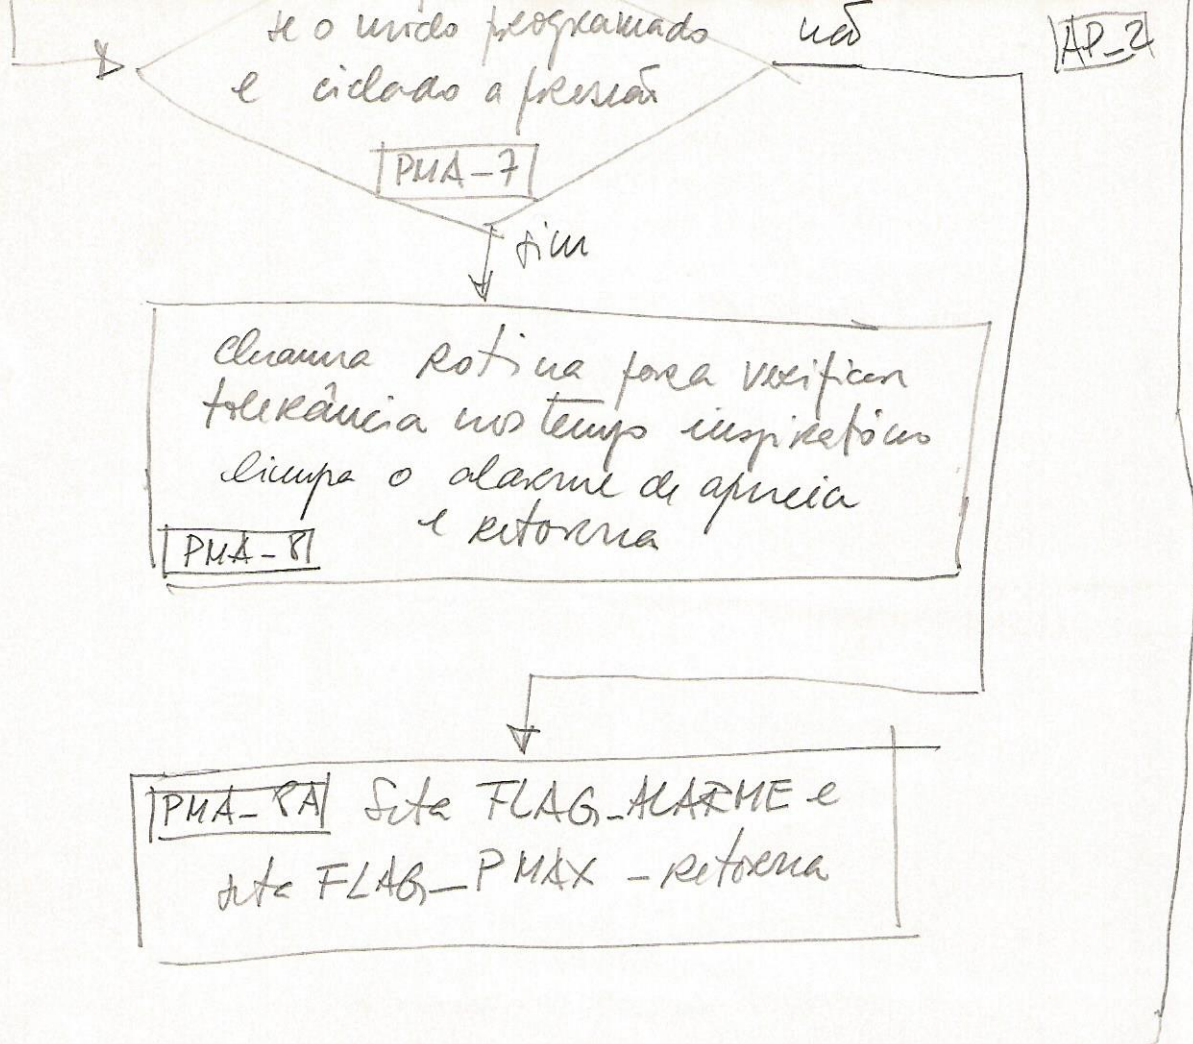 se o modo programado
não
AP_2
é ciclado a pressão
PMA-7
sim
chama rotina para verificar
tolerância nos tempo inspiratório
limpa o alarme de apneia
e retorna
PMA-8
PMA-8A Seta FLAG_ALARME e
seta FLAG_PMAX - retorna